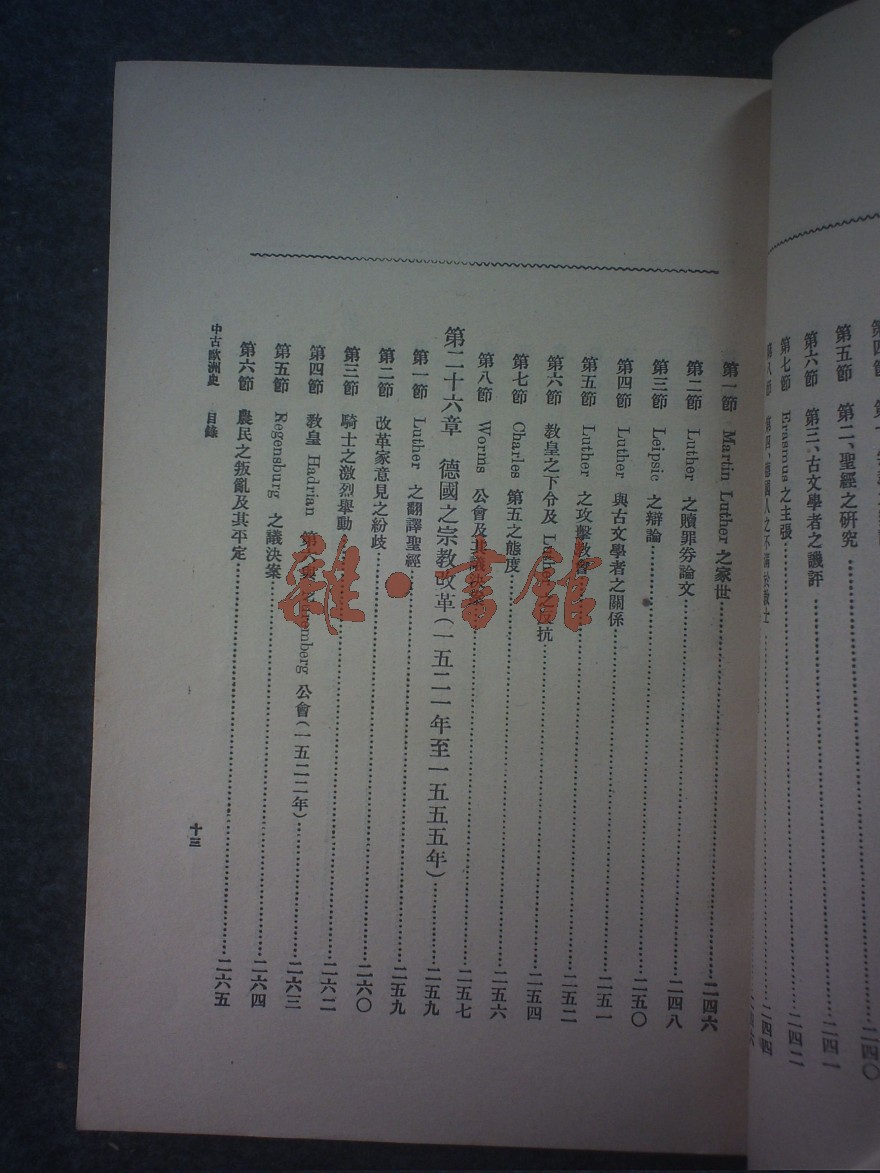 第五節 第二、聖經之研究………二四〇
第六節 第三、古文學者之譏評………二四一
第七節 Erasmus 之主張………二四二
第八節 第四、德國人之不滿於教士………二四四
第一節 Martin Luther 之家世………二四六
第二節 Luther 之贖罪券論文………二四八
第三節 Leipsic 之辯論………二五〇
第四節 Luther 與古文學者之關係………二五一
第五節 Luther 之攻擊教會………二五二
第六節 教皇之下令及 Luther 之反抗………二五四
第七節 Charles 第五之態度………二五六
第八節 Worms 公會及其議決案………二五七
第二十六章 德國之宗教改革(一五二一年至一五五五年)………二五九
第一節 Luther 之翻譯聖經………二五九
第二節 改革家意見之紛歧………二六〇
第三節 騎士之激烈舉動………二六二
第四節 教皇 Hadrian 第六與 Nuremberg 公會(一五二二年)………二六三
第五節 Regensburg 之議決案………二六四
第六節 農民之叛亂及其平定………二六五
中古歐洲史 目錄
十三
雜·書館